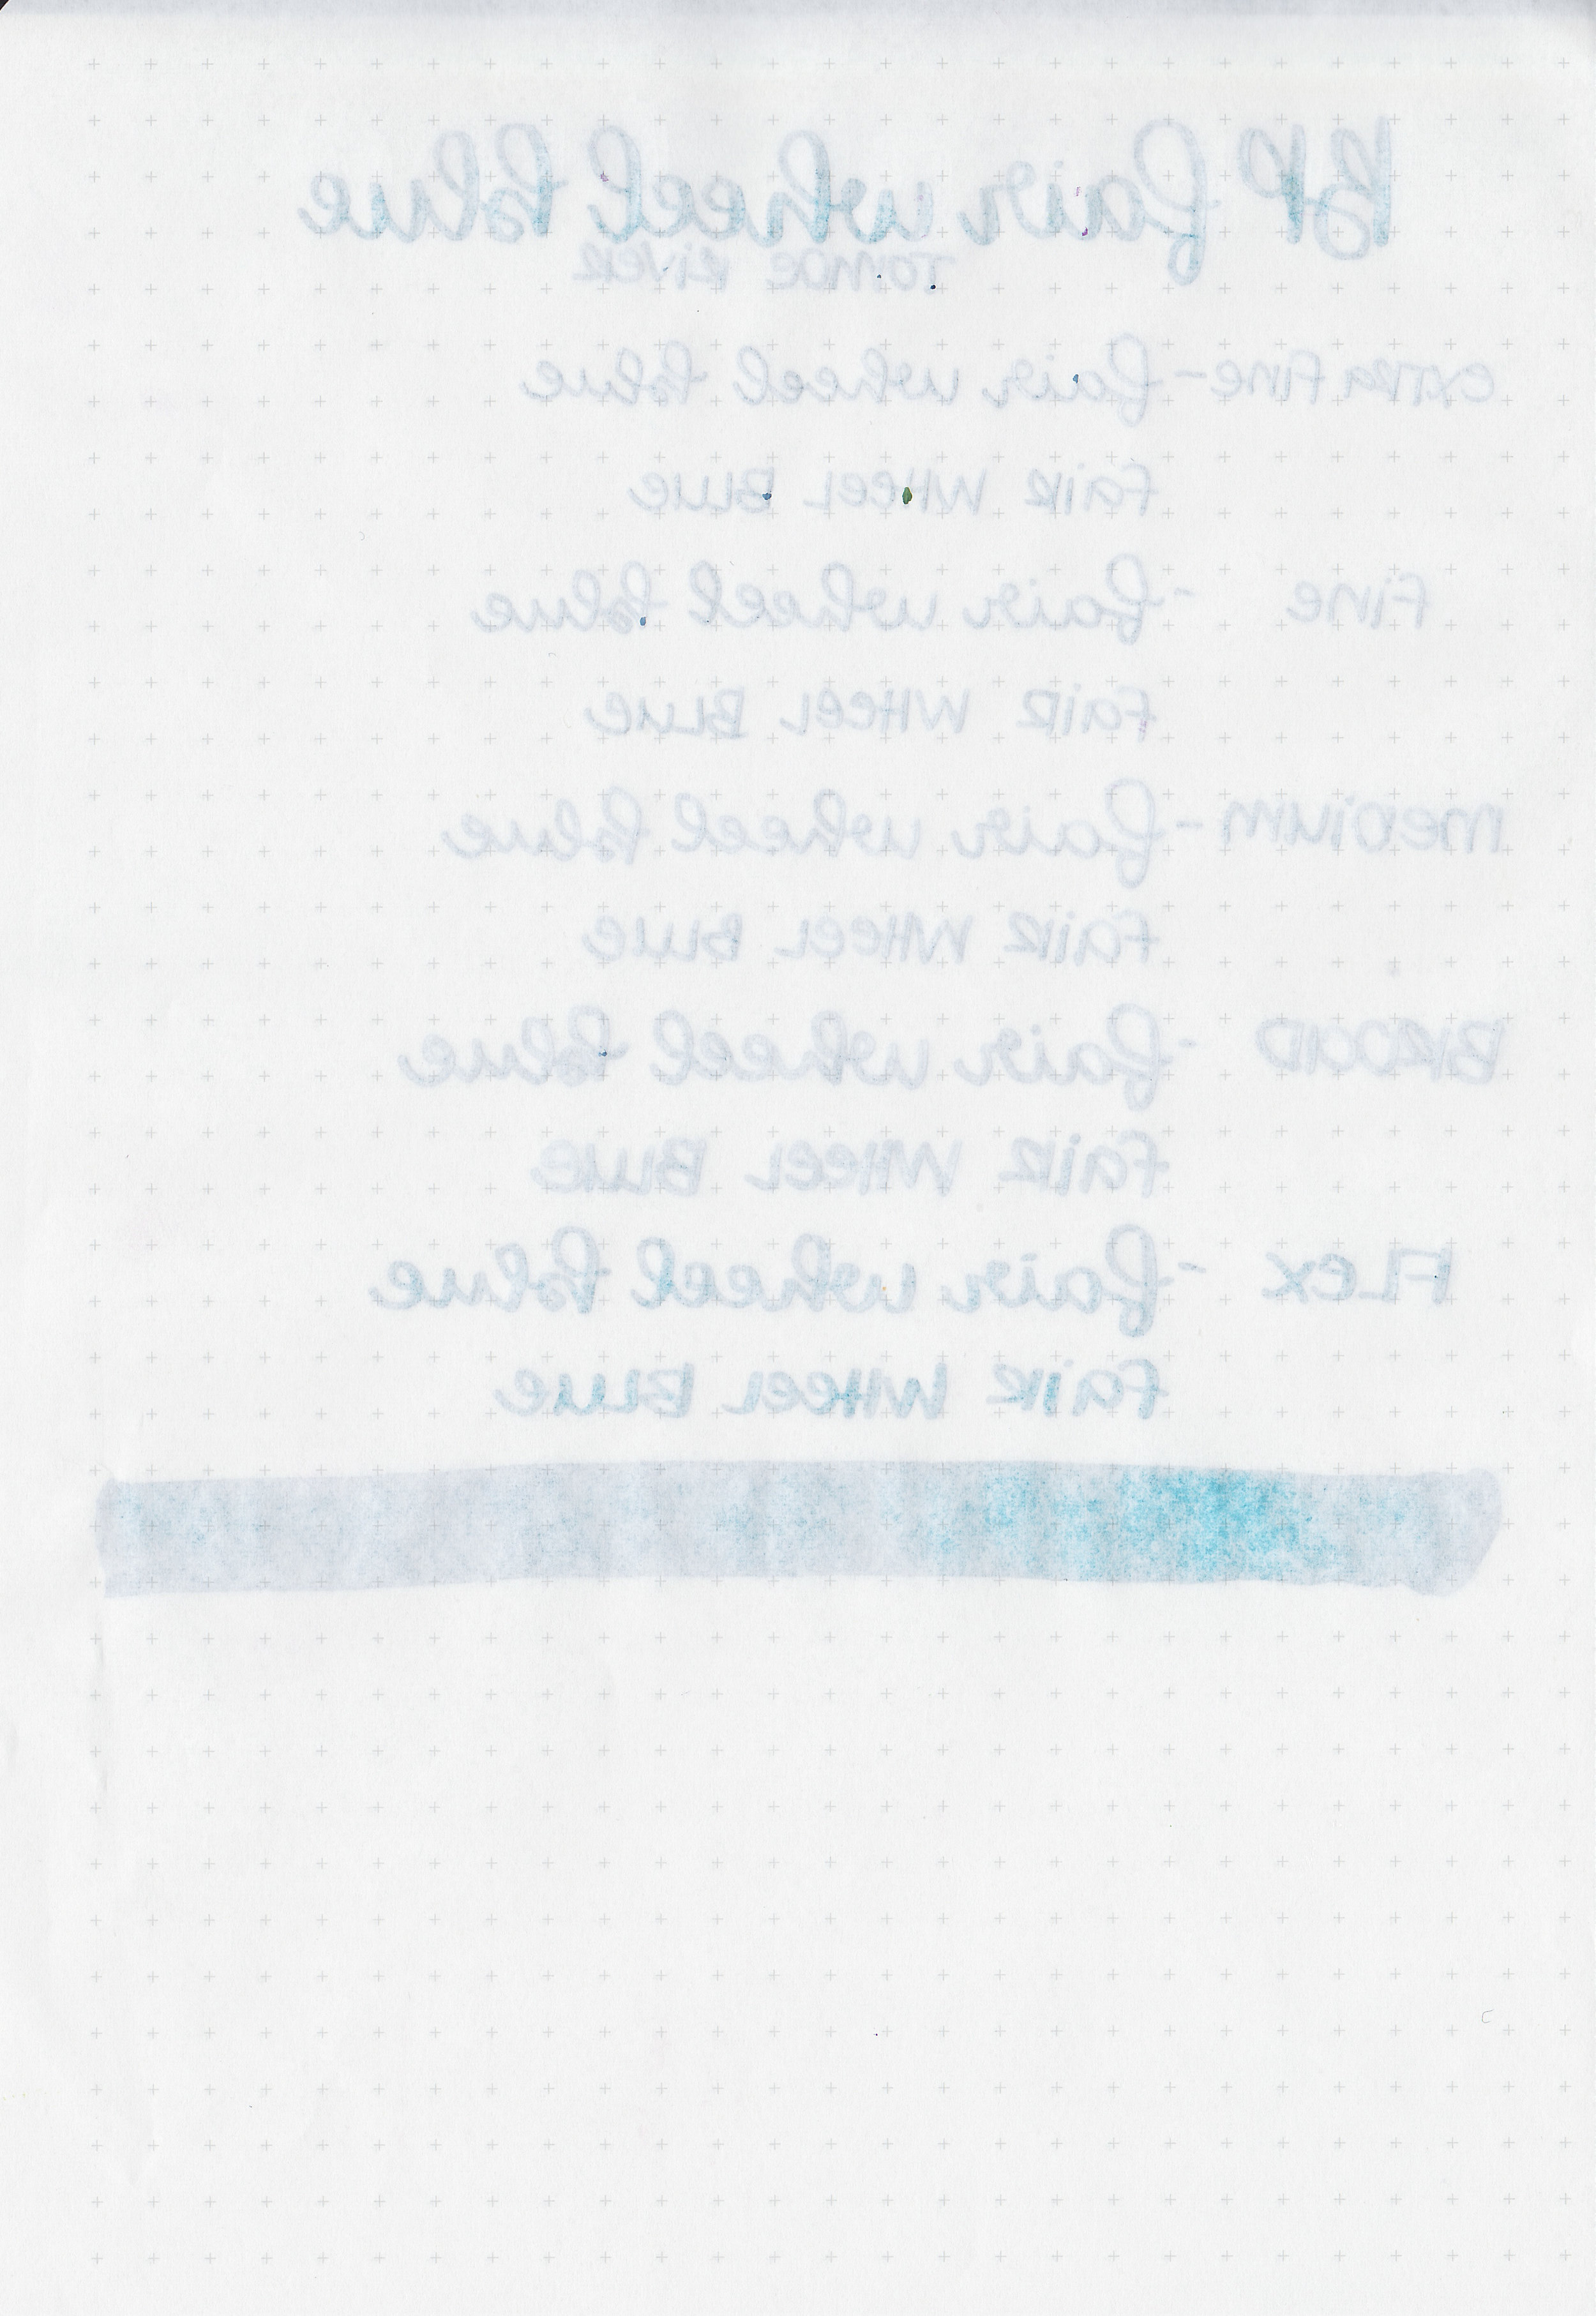 BP fair wheel blue
TOMOE RIVER
EXTRA FINE - fair wheel blue
FAIR WHEEL BLUE
FINE - fair wheel blue
FAIR WHEEL BLUE
MEDIUM - fair wheel blue
FAIR WHEEL BLUE
BROAD - fair wheel blue
FAIR WHEEL BLUE
FLEX - fair wheel blue
FAIR WHEEL BLUE